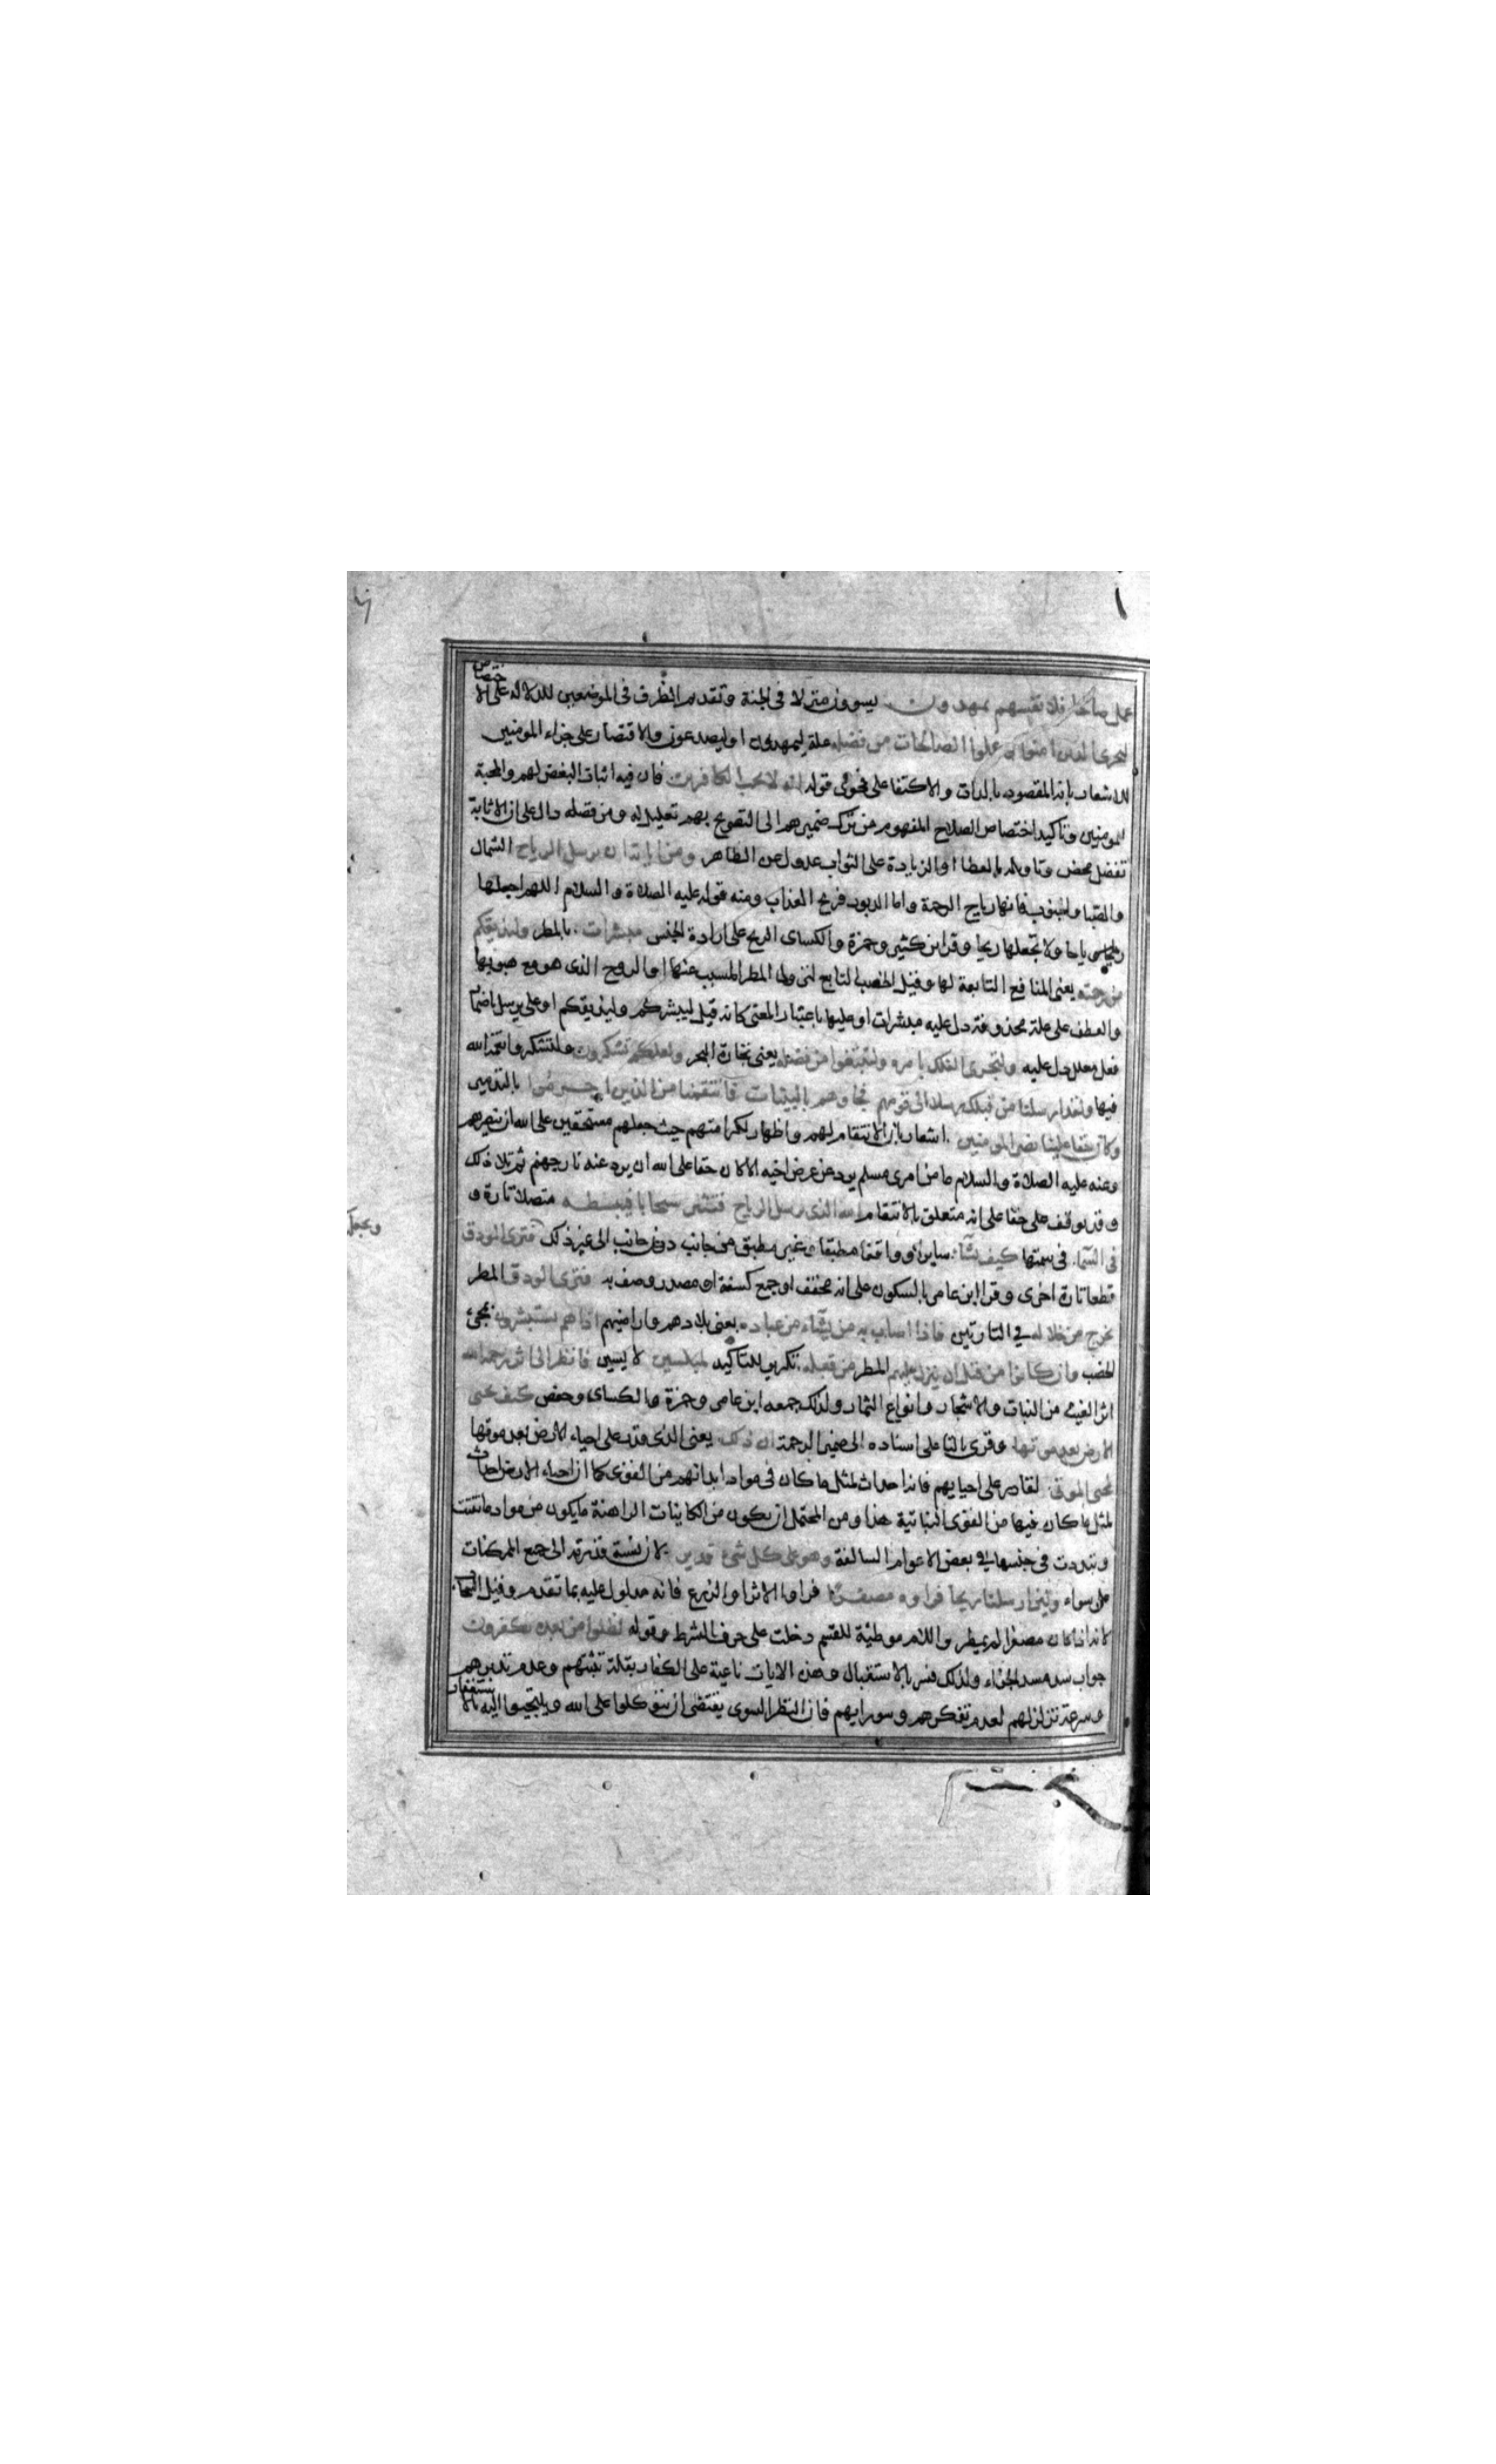 عمل صالحا فلانفسهم يمهدون يسوون منزلا في الجنة وتقديم الظرف في الموضعين للدلالة على الاختصاص
ليجزي الذين امنوا وعملوا الصالحات من فضله علة ليمهدون او ليصدعون والاقتصار على جزاء المومنين
للاشعار بانه المقصود بالذات والاكتفا على فحوى قوله انه لا يحب الكافرين فان فيه اثبات البغض لهم والمحبة
للمومنين وتاكيد اختصاص الصلاح المفهوم من ترك ضميرهم الى التصريح بهم تعليل له ومن فضله دال على ان الاثابة
تفضل محض وتاويله بالعطا او الزيادة على الثواب عدول عن الظاهر ومن اياته ان يرسل الرياح الشمال
والصبا والجنوب فانها رياح الرحمة واما الدبور فريح العذاب ومنه قوله عليه الصلاة والسلام اللهم اجعلها
رياحا ولا تجعلها ريحا وقرا ابن كثير وحمزة والكساى الريح على ارادة الجنس مبشرات بالمطر وليذيقكم
من رحمته يعنى المنافع التابعة لها وقيل الخصب التابع لنزول المطر المسبب عنها او الروح الذى هو مع هبوبها
والعطف على علة محذوفة دل عليه مبشرات او عليها باعتبار المعنى كانه قيل ليبشركم وليذيقكم او على يرسل باضمار
فعل معلل دل عليه ولتجرى الفلك بامره ولتبتغوا من فضله يعنى تجارة البحر ولعلكم تشكرون ولتشكروا نعمة الله
فيها ولقد ارسلنا من قبلك رسلا الى قومهم فجاوهم بالبينات فانتقمنا من الذين اجرموا بالتدمير
وكان حقا علينا نصر المومنين اشعار بان الانتقام لهم واظهار لكرامتهم حيث جعلهم مستحقين على الله ان ينصرهم
وعنه عليه الصلاة والسلام ما من امرى مسلم يرد عن عرض اخيه الا كان حقا على الله ان يرد عنه نار جهنم ثم تلا ذلك
وقد يوقف على حقا على انه متعلق بالانتقام الله الذى يرسل الرياح فتثير سحابا فيبسطه متصلا تارة و
فى السما فى سمتها كيف يشا سايرا وواقفا مطبقا وغير مطبق من جانب دون جانب الى غير ذلك فترى الودق
قطعا تارة اخرى وقرا ابن عامر بالسكون على انه مخفف او جمع كسفة او مصدر وصف به فترى الودق المطر
يخرج من خلاله في التارتين فاذا اصاب به من يشاء من عباده يعنى بلادهم واراضيهم اذا هم يستبشرون بمجئ
الخصب وان كانوا من قبل ان ينزل عليهم المطر من قبله تكرير للتاكيد لمبلسين لايسين فانظر الى اثر رحمة الله
اثر الغيث من النبات والاشجار وانواع الثمار ولذلك جمعه ابن عامر وحمزة والكساى وحفص كيف يحيى
الارض بعد موتها وقرى بالتا على اسناده الى ضمير الرحمة ان ذلك يعنى الذى قدر على احياء الارض بعد موتها
لمحيى الموتى لقادر على احيايهم فانه احداث لمثل ما كان فى مواد ابدانهم من القوى كما ان احياء الارض احداث
لمثل ما كان فيها من القوى النباتية هذا ومن المحتمل ان يكون من الكاينات الراهنة ما يكون من مواد ما تفتت
وتبددت فى جنسها في بعض الاعوام السالفة وهو على كل شئ قدير لان نسبة قدرته الى جميع الممكنات
على سواء ولئن ارسلنا ريحا فراوه مصفرا فراوا الاثر او الزرع فانه مدلول عليه بما تقدم وقيل السحاب
لانه اذا كان مصفرا لم يمطر واللام موطئة للقسم دخلت على حرف الشرط وقوله لظلوا من بعده يكفرون
جواب سد مسد الجزاء ولذلك فسر بالاستقبال وهذه الايات ناعية على الكفار بقلة تثبتهم وعدم تدبرهم
وسرعة تزلزلهم لعدم تفكرهم وسو رايهم فان النظر السوى يقتضى ان يتوكلوا على الله ويلتجيوا اليه بالاستغفار
ويجعله